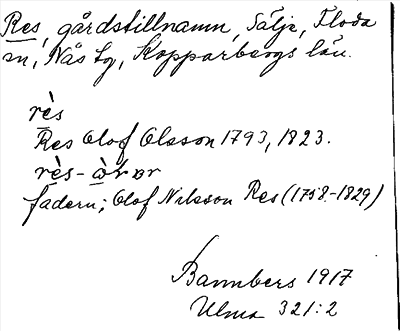 Res, gårdstillnamn, Sälje, Floda
sn, Nås tg, Kopparbergs län.
rès
Res Olof Olsson 1793, 1823.
rès-
fadern; Olof Nilsson Res (1758-1829)
Bannbers 1917
Ulma 321:2